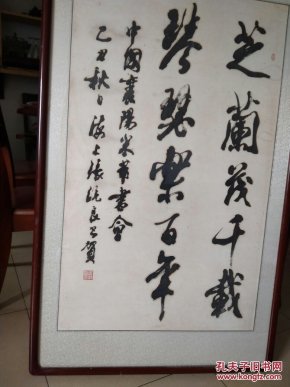 芝蘭茂千載
琴瑟樂百年
中國襄陽米芾書會
乙丑秋日海上張
良書賀
孔夫子旧书网